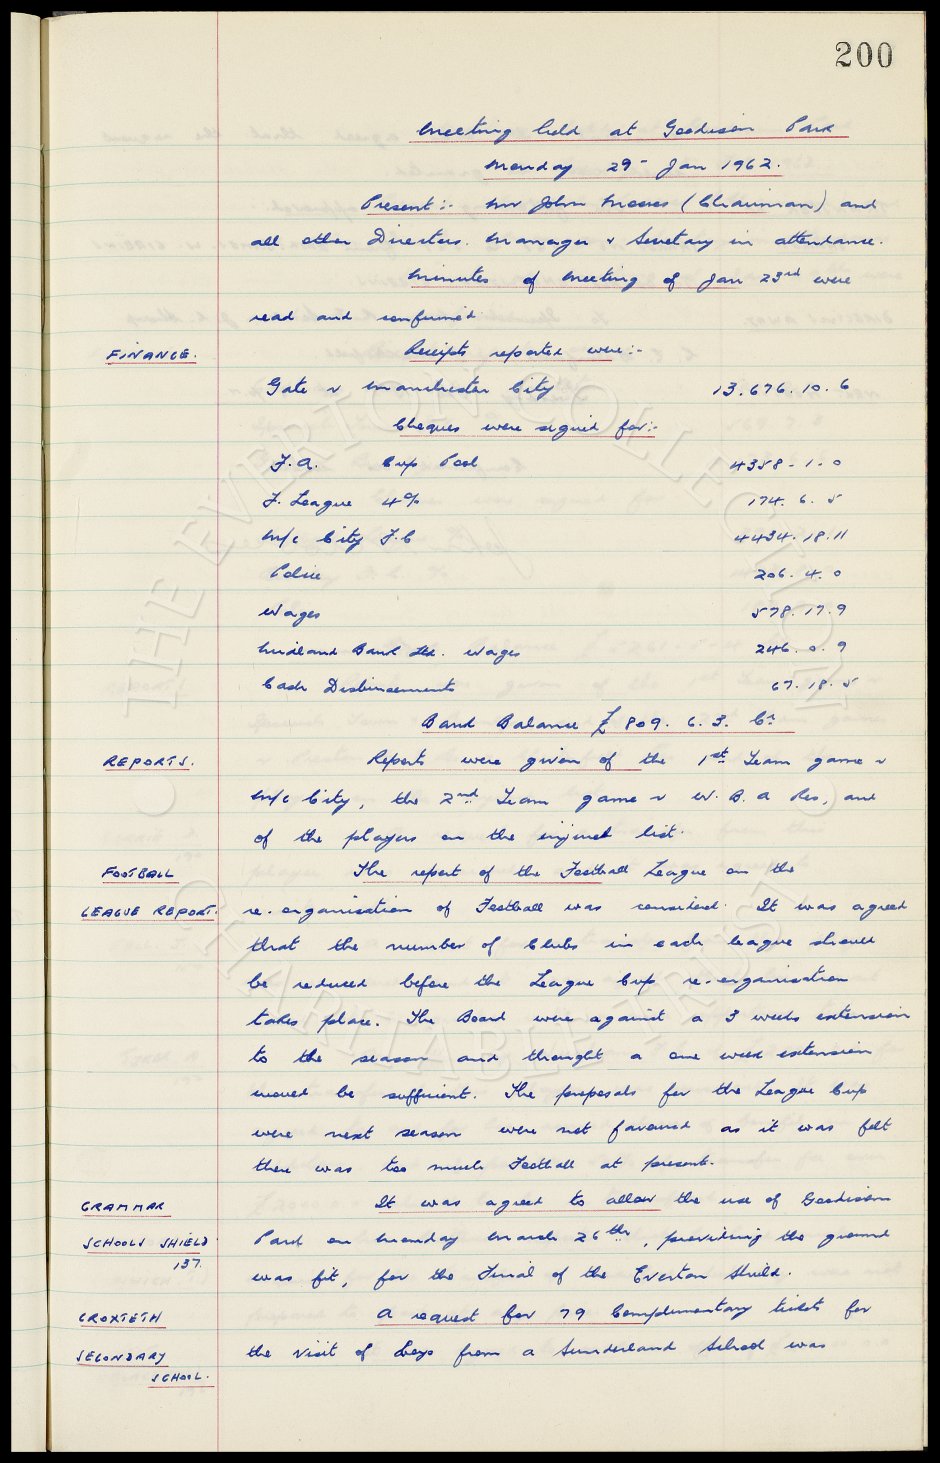 200
Meeting held at Goodison Park
Monday 29th Jan 1962.
Present:- Mr John Moores (Chairman) and
all other Directors. Manager & Secretary in attendance.
Minutes of Meeting of Jan 23rd were
read and confirmed
FINANCE. Receipts reported were:-
Gate v Manchester City 13.676.10.6
Cheques were signed for:-
F.A. Cup Pool 4358-1-0
F. League 4% 174.6.5
M/c City F.C 4434.18.11
Police 206.4.0
Wages 578.17.9
Midland Bank Ltd. Wages 246.0.9
Cash Disbursements 67.18.5
Bank Balance £809.6.3. Cr
REPORTS. Reports were given of the 1st Team game v
M/c City, the 2nd Team game v W.B.A Res, and
of the players on the injured list.
FOOTBALL The report of the Football League on the
LEAGUE REPORT. re-organisation of Football was considered. It was agreed
that the number of Clubs in each league should
be reduced before the League Cup re-organisation
takes place. The Board were against a 3 weeks extension
to the season and thought a one week extension
would be sufficient. The proposals for the League Cup
were next season were not favoured as it was felt
there was too much Football at present.
GRAMMAR It was agreed to allow the use of Goodison
SCHOOLS SHIELD Park on Monday March 26th, providing the ground
137. was fit, for the Final of the Everton Shield.
CROXTETH A request for 79 Complimentary tickets for
SECONDARY the visit of boys from a Sunderland School was
SCHOOL.
THE EVERTON COLLECTION
CHARITABLE TRUST